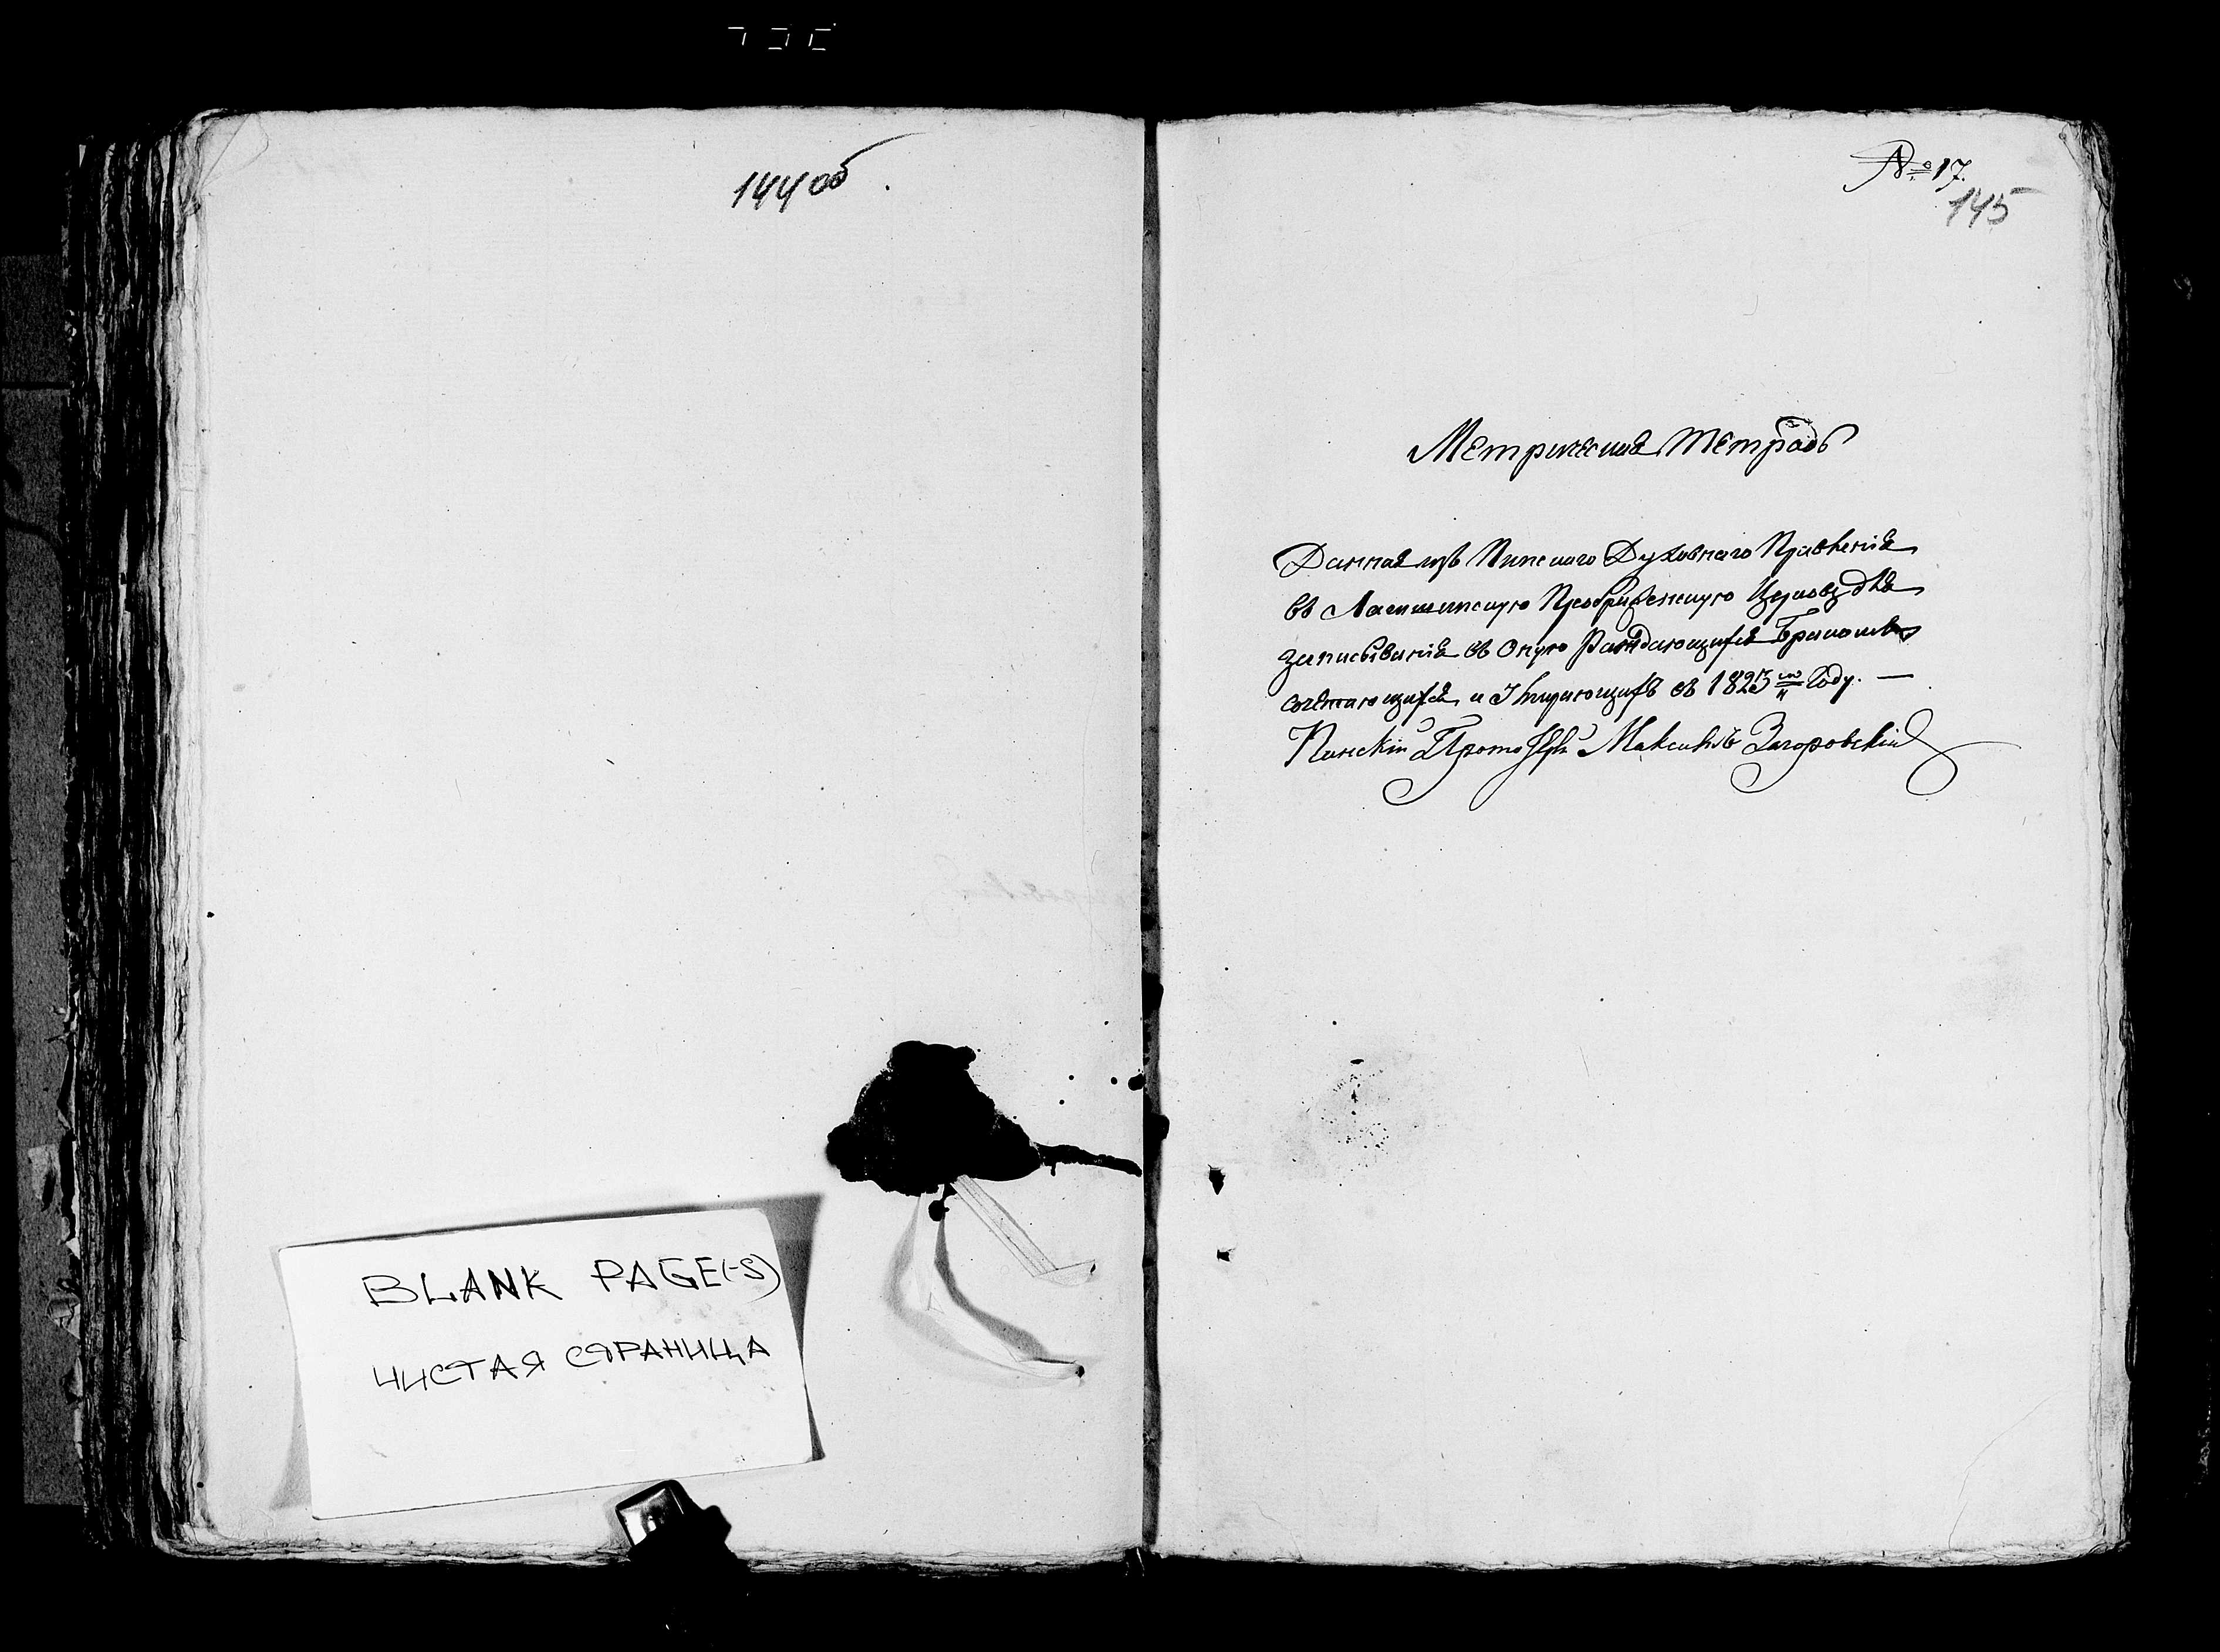 144об.
BLANK PAGE(-S)
ЧИСТАЯ СТРАНИЦА
№ 17.
145
Метрическая тетрадь
Данная изъ Пинскаго Духовнаго Правленія
въ Преображенскую Церковь для
записыванія въ оную Раждающихся Бракомъ
сочетающихся и Умирающихъ въ 1823 м Году. —
Пинскій Прото Максимъ Загоровскій